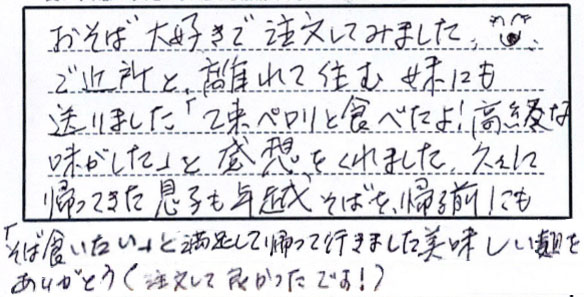 おそば大好きで注文してみました。
ご近所と、離れて住む妹にも
送りました「2束ペロリと食べたよ!高級な
味がした」と感想をくれました。久々に
帰ってきた息子も年越しそばを、帰る前にも
「そば食いたい」と満足して帰って行きました美味しい麺を
ありがとう(注文して良かったです!)